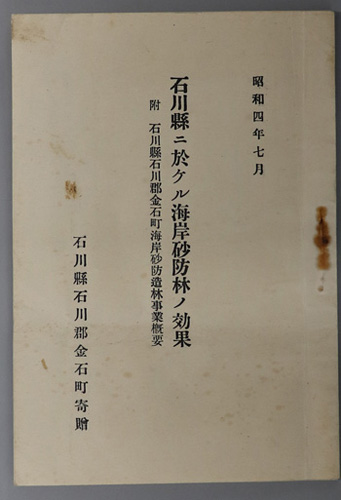 昭和四年七月
石川縣ニ於ケル海岸砂防林ノ効果
附 石川縣石川郡金石町海岸砂防造林事業概要
石川縣石川郡金石町寄贈